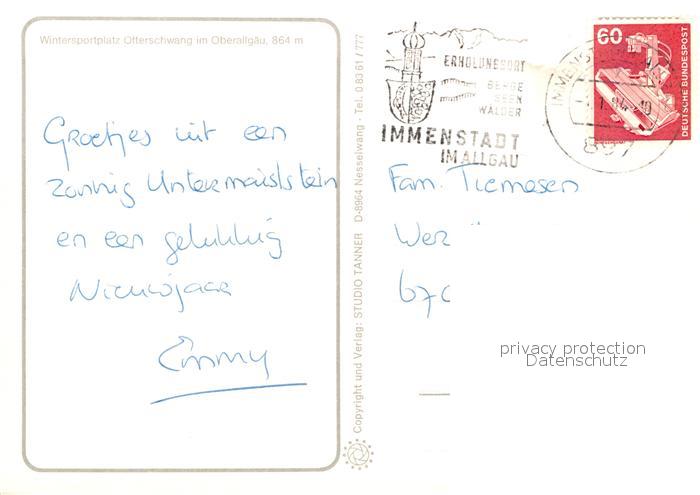 Wintersportplatz Otterschwang im Oberallgäu, 864 m
Groetjes uit een
zonnig Untermaiselstein
en een gelukkig
Nieuwjaar
Emmy
Copyright und Verlag: STUDIO TANNER D-8964 Nesselwang · Tel. 0 83 61 / 777
ERHOLUNGSORT
BERGE
SEEN
WÄLDER
IMMENSTADT
IM ALLGÄU
60
DEUTSCHE BUNDESPOST
Fam. Tiemesen
Wez
67c
privacy protection
Datenschutz